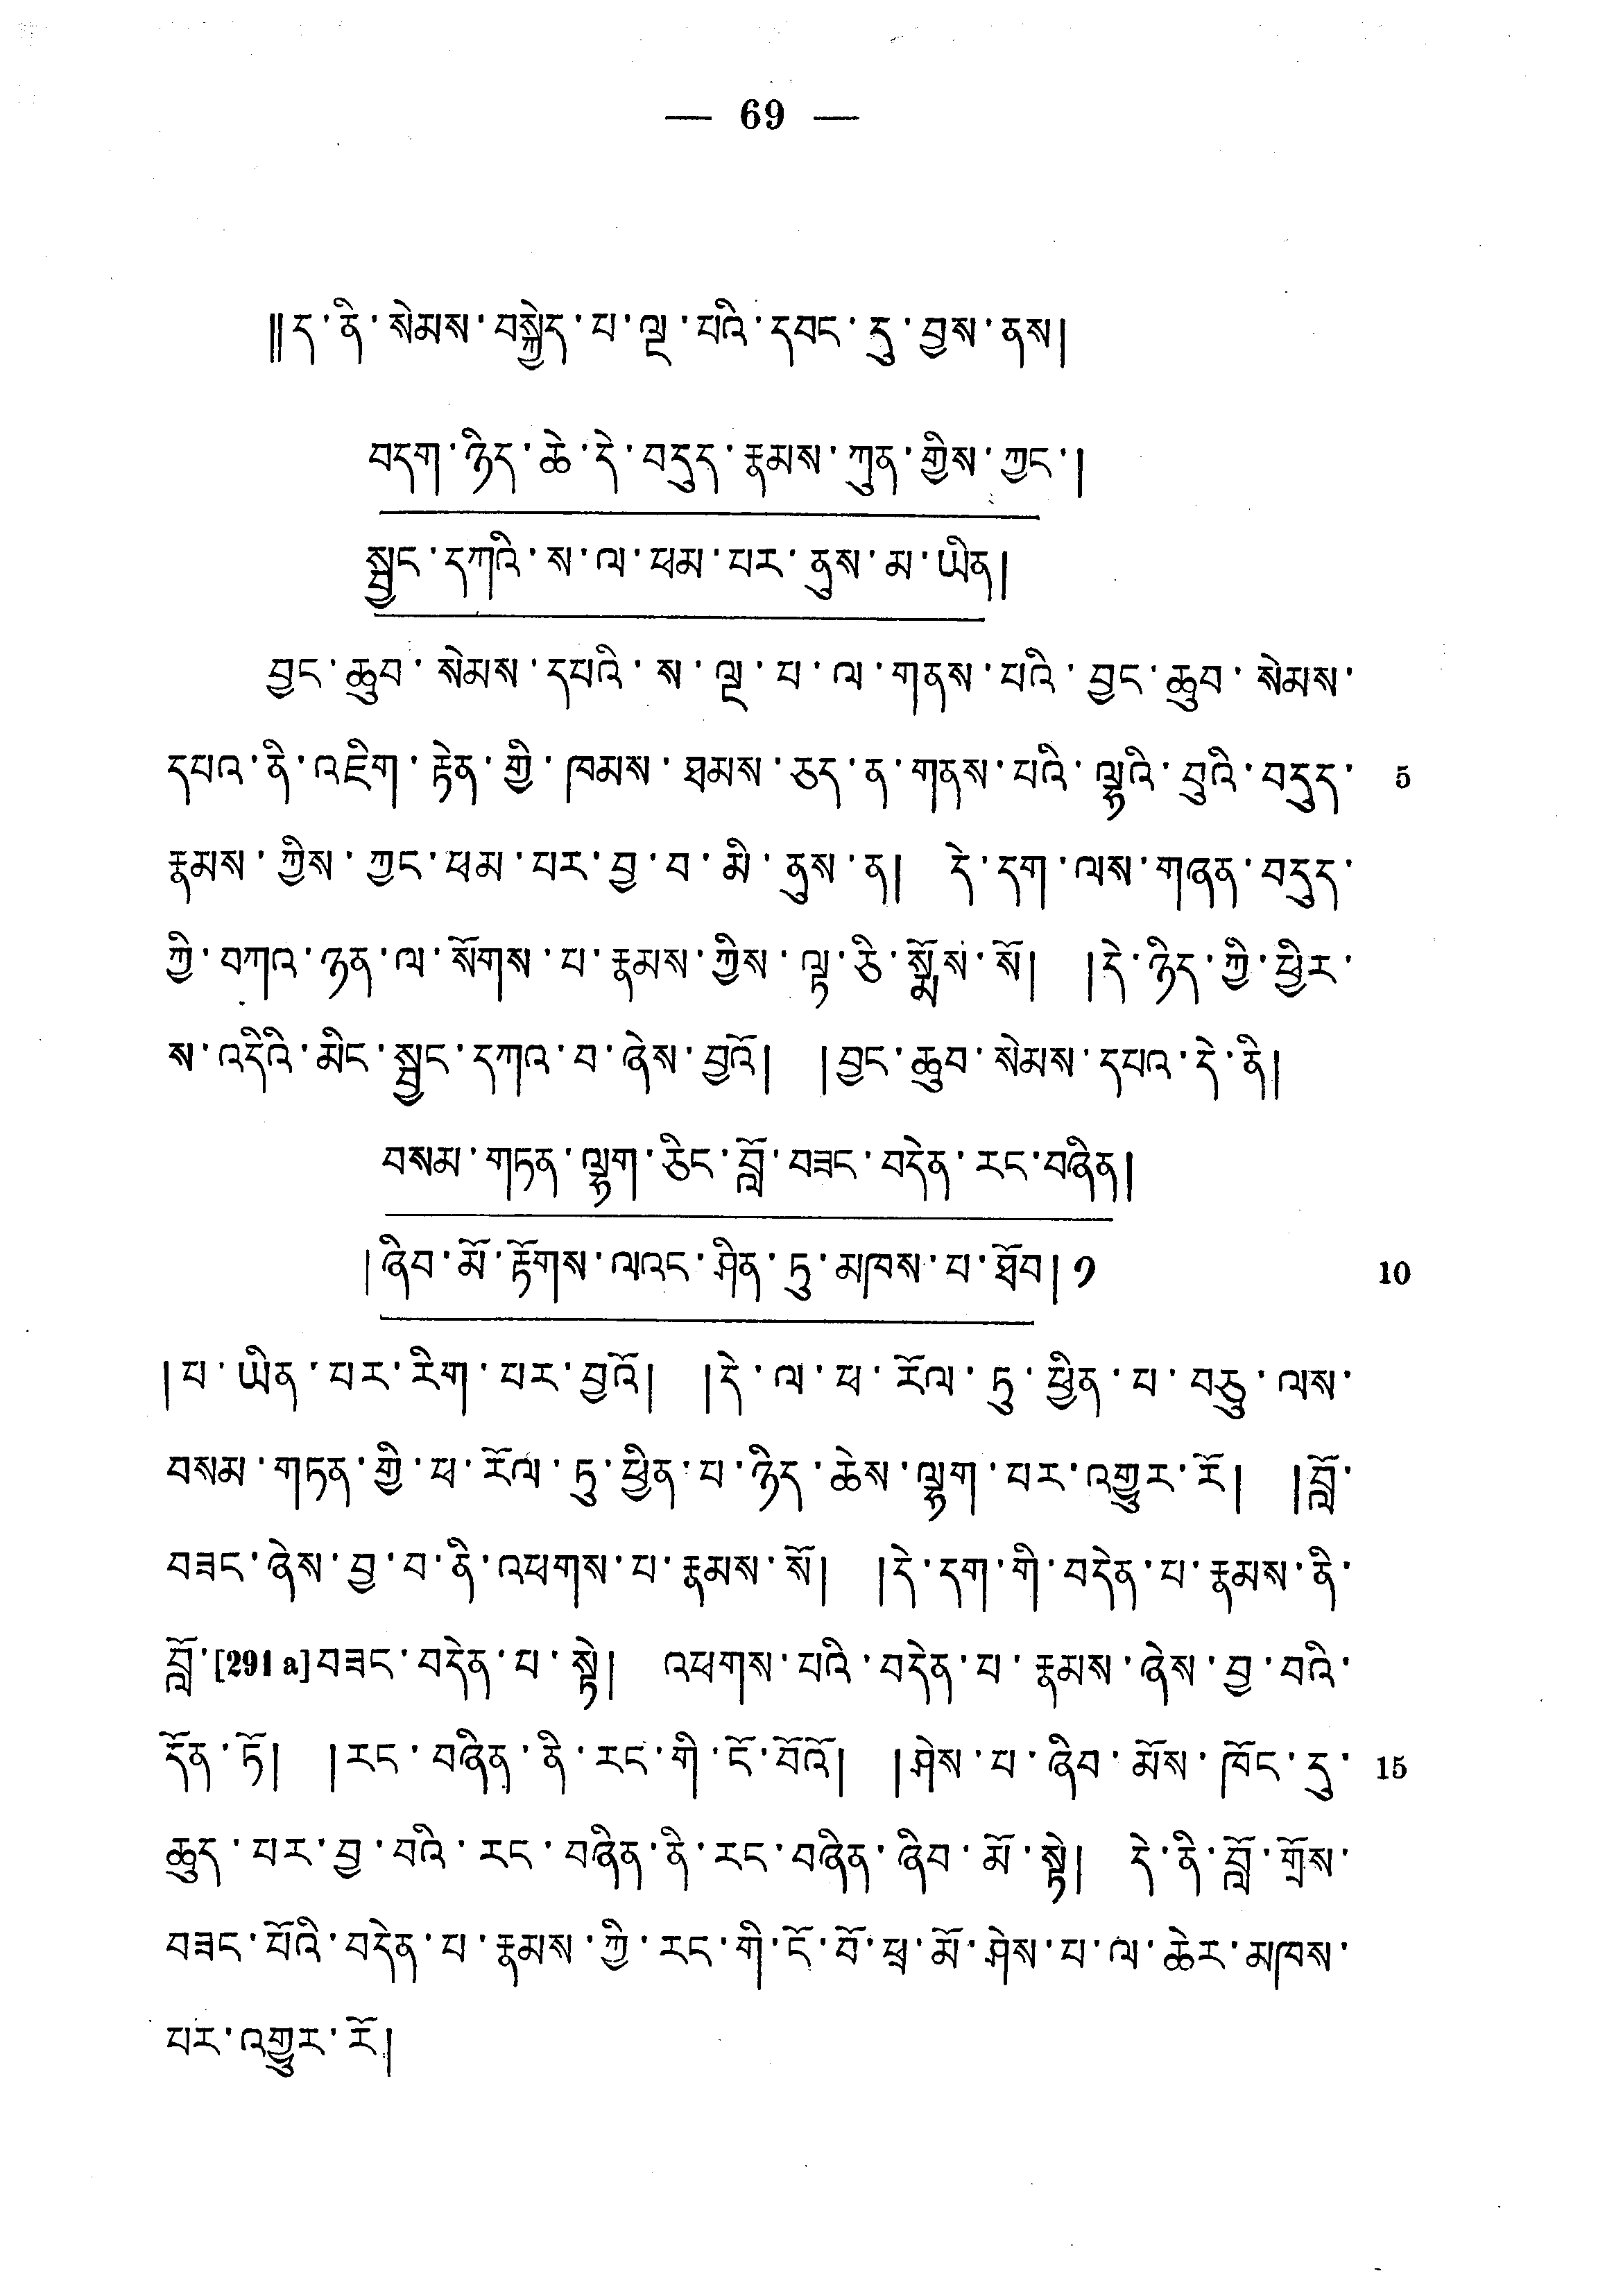 — 69 —
༎ད་ནི་སེམས་བསྐྱེད་པ་ལྔ་པའི་དབང་དུ་བྱས་ནས།
བདག་ཉིད་ཆེ་དེ་བདུད་རྣམས་ཀུན་གྱིས་ཀྱང་།
སྦྱང་དཀའི་ས་ལ་ཕམ་པར་ནུས་མ་ཡིན།
བྱང་ཆུབ་སེམས་དཔའི་ས་ལྔ་པ་ལ་གནས་པའི་བྱང་ཆུབ་སེམས་
དཔའ་ནི་འཇིག་རྟེན་གྱི་ཁམས་ཐམས་ཅད་ན་གནས་པའི་ལྷའི་བུའི་བདུད་ 5
རྣམས་ཀྱིས་ཀྱང་ཕམ་པར་བྱ་བ་མི་ནུས་ན། དེ་དག་ལས་གཞན་བདུད་
ཀྱི་བཀའ་ཉན་ལ་སོགས་པ་རྣམས་ཀྱིས་ལྟ་ཅི་སྨོས་སོ། །དེ་ཉིད་ཀྱི་ཕྱིར་
ས་འདིའི་མིང་སྦྱང་དཀའ་བ་ཞེས་བྱའོ། །བྱང་ཆུབ་སེམས་དཔའ་དེ་ནི།
བསམ་གཏན་ལྷག་ཅིང་བློ་བཟང་བདེན་རང་བཞིན།
།ཞིབ་མོ་རྟོགས་ལའང་ཤིན་ཏུ་མཁས་པ་ཐོབ། ༡ 10
།པ་ཡིན་པར་རིག་པར་བྱའོ། །དེ་ལ་ཕ་རོལ་ཏུ་ཕྱིན་པ་བཅུ་ལས་
བསམ་གཏན་གྱི་ཕ་རོལ་ཏུ་ཕྱིན་པ་ཉིད་ཆེས་ལྷག་པར་འགྱུར་རོ། །བློ་
བཟང་ཞེས་བྱ་བ་ནི་འཕགས་པ་རྣམས་སོ། །དེ་དག་གི་བདེན་པ་རྣམས་ནི་
བློ་[291a]བཟང་བདེན་པ་སྟེ། འཕགས་པའི་བདེན་པ་རྣམས་ཞེས་བྱ་བའི་
དོན་ཏོ། །རང་བཞིན་ནི་རང་གི་ངོ་བོའོ། །ཤེས་པ་ཞིབ་མོས་ཁོང་དུ་ 15
ཆུད་པར་བྱ་བའི་རང་བཞིན་ནི་རང་བཞིན་ཞིབ་མོ་སྟེ། དེ་ནི་བློ་གྲོས་
བཟང་པོའི་བདེན་པ་རྣམས་ཀྱི་རང་གི་ངོ་བོ་ཕྲ་མོ་ཤེས་པ་ལ་ཆེར་མཁས་
པར་འགྱུར་རོ།